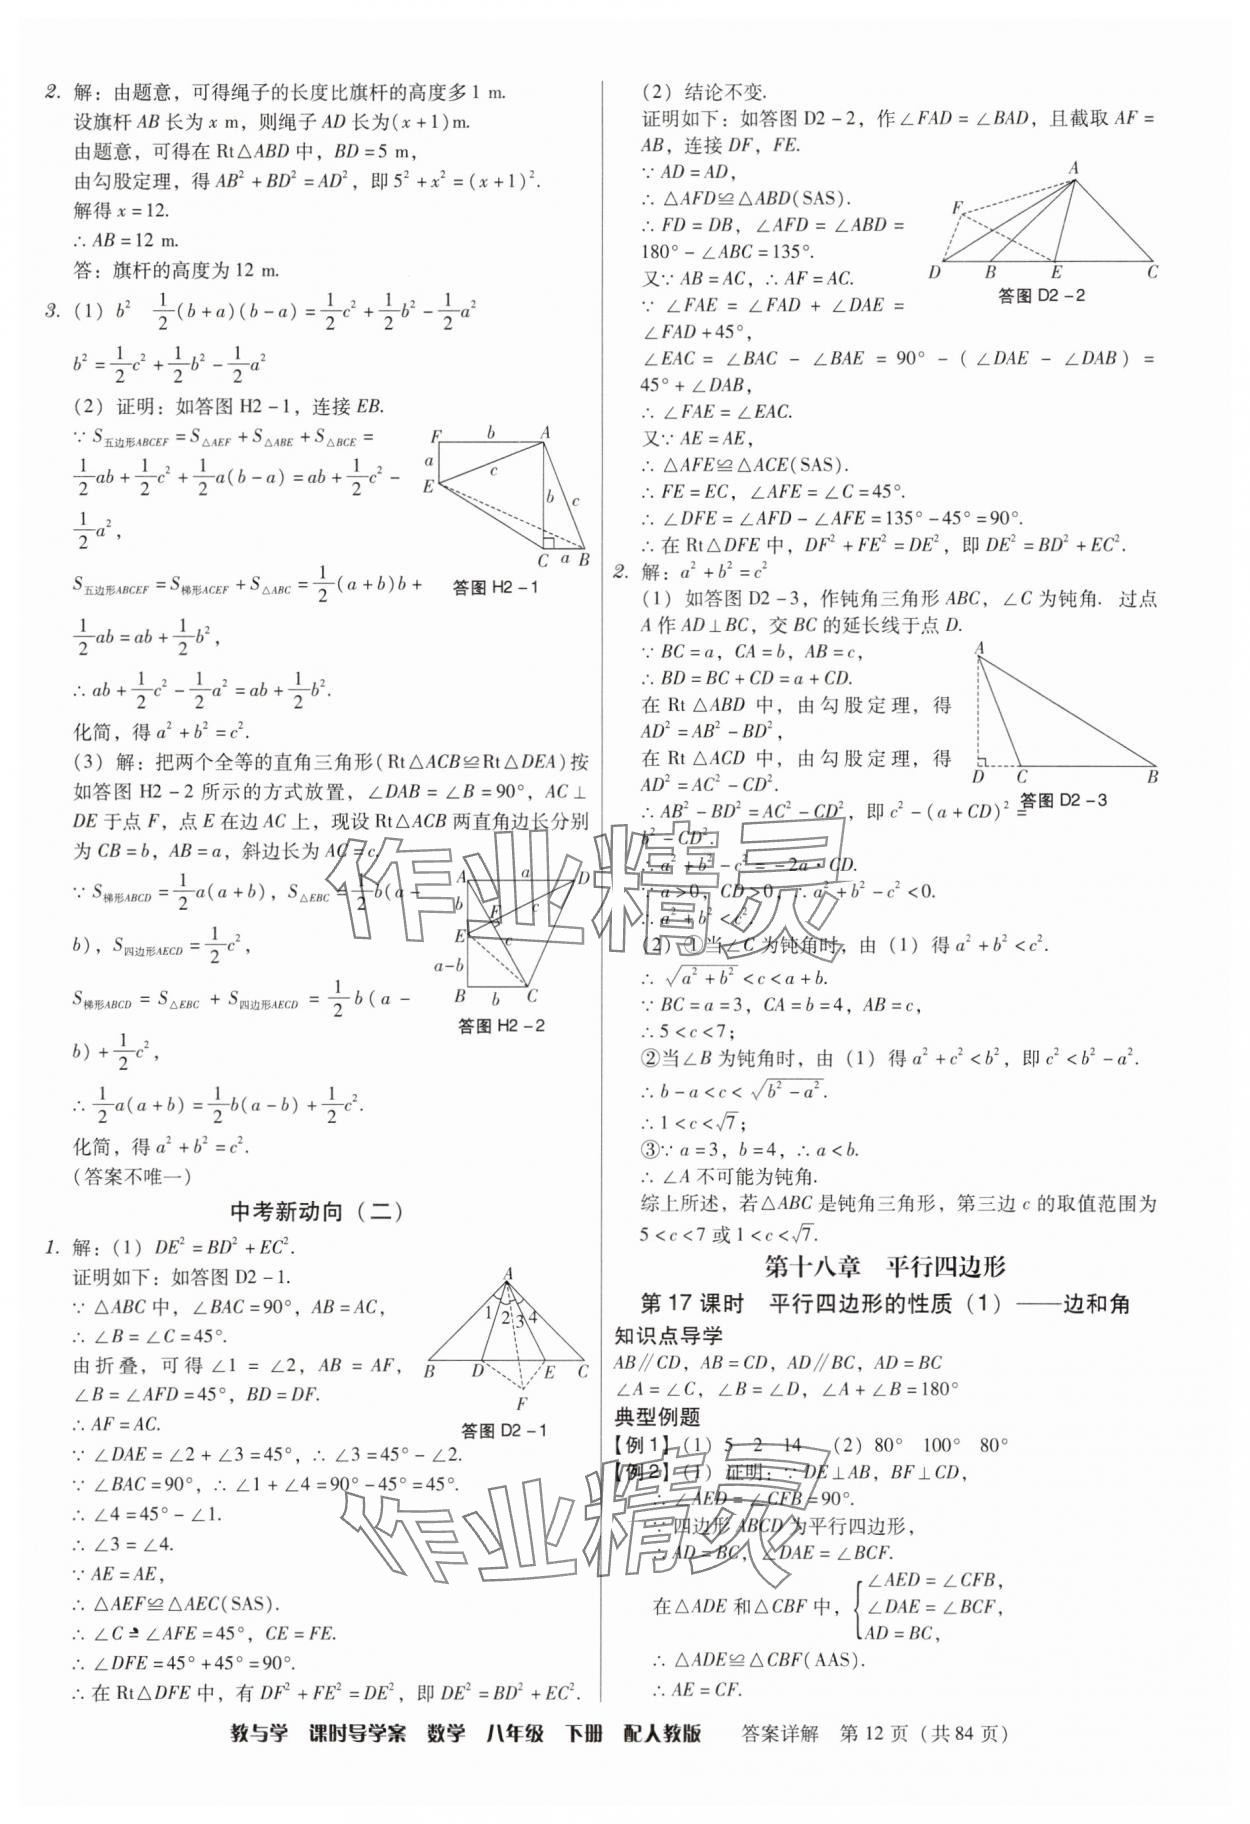 2. 解：由题意，可得绳子的长度比旗杆的高度多1 m.
设旗杆 AB 长为 x m，则绳子 AD 长为(x+1)m.
由题意，可得在 Rt△ABD 中，BD=5 m，
由勾股定理，得 AB²+BD²=AD²，即 5²+x²=(x+1)².
解得 x=12.
∴ AB=12 m.
答：旗杆的高度为 12 m.
3. (1) b²　1/2(b+a)(b-a)=1/2c²+1/2b²-1/2a²
b²=1/2c²+1/2b²-1/2a²
(2) 证明：如答图 H2-1，连接 EB.
∵ S五边形ABCEF=S△AEF+S△ABE+S△BCE=
1/2ab+1/2c²+1/2a(b-a)=ab+1/2c²-
1/2a²，
S五边形ABCEF=S梯形ACEF+S△ABC=1/2(a+b)b+
1/2ab=ab+1/2b²，
∴ ab+1/2c²-1/2a²=ab+1/2b².
化简，得 a²+b²=c².
F b A
a c
E b c
C a B
答图 H2-1
(3) 解：把两个全等的直角三角形(Rt△ACB≌Rt△DEA)按
如答图 H2-2 所示的方式放置，∠DAB=∠B=90°，AC⊥
DE 于点 F，点 E 在边 AC 上，现设 Rt△ACB 两直角边长分别
为 CB=b，AB=a，斜边长为 AC=c.
∵ S梯形ABCD=1/2a(a+b)，S△EBC=1/2b(a-
b)，S四边形AECD=1/2c²，
S梯形ABCD=S△EBC+S四边形AECD=1/2b(a-
b)+1/2c²，
∴ 1/2a(a+b)=1/2b(a-b)+1/2c².
化简，得 a²+b²=c².
(答案不唯一)
A a D
b F c
E c
a-b
B b C
答图 H2-2
中考新动向（二）
1. 解：(1) DE²=BD²+EC².
证明如下：如答图 D2-1.
∵ △ABC 中，∠BAC=90°，AB=AC，
∴ ∠B=∠C=45°.
由折叠，可得∠1=∠2，AB=AF，
∠B=∠AFD=45°，BD=DF.
∴ AF=AC.
∵ ∠DAE=∠2+∠3=45°，∴ ∠3=45°-∠2.
∵ ∠BAC=90°，∴ ∠1+∠4=90°-45°=45°.
∴ ∠4=45°-∠1.
∴ ∠3=∠4.
∵ AE=AE，
∴ △AEF≌△AEC(SAS).
∴ ∠C=∠AFE=45°，CE=FE.
∴ ∠DFE=45°+45°=90°.
∴ 在 Rt△DFE 中，有 DF²+FE²=DE²，即 DE²=BD²+EC².
A
1 2 3 4
B D E C
F
答图 D2-1
(2) 结论不变.
证明如下：如答图 D2-2，作∠FAD=∠BAD，且截取 AF=
AB，连接 DF，FE.
∵ AD=AD，
∴ △AFD≌△ABD(SAS).
∴ FD=DB，∠AFD=∠ABD=
180°-∠ABC=135°.
又∵ AB=AC，∴ AF=AC.
∵ ∠FAE=∠FAD+∠DAE=
∠FAD+45°，
∠EAC=∠BAC-∠BAE=90°-(∠DAE-∠DAB)=
45°+∠DAB，
∴ ∠FAE=∠EAC.
又∵ AE=AE，
∴ △AFE≌△ACE(SAS).
∴ FE=EC，∠AFE=∠C=45°.
∴ ∠DFE=∠AFD-∠AFE=135°-45°=90°.
∴ 在 Rt△DFE 中，DF²+FE²=DE²，即 DE²=BD²+EC².
A
F
D B E C
答图 D2-2
2. 解：a²+b²=c²
(1) 如答图 D2-3，作钝角三角形 ABC，∠C 为钝角. 过点
A 作 AD⊥BC，交 BC 的延长线于点 D.
∵ BC=a，CA=b，AB=c，
∴ BD=BC+CD=a+CD.
在 Rt△ABD 中，由勾股定理，得
AD²=AB²-BD²，
在 Rt△ACD 中，由勾股定理，得
AD²=AC²-CD².
∴ AB²-BD²=AC²-CD²，即 c²-(a+CD)²=
b²-CD².
∴ a²+b²-c²=-2a·CD.
∵ a>0，CD>0，∴ a²+b²-c²<0.
∴ a²+b²<c².
A
D C B
答图 D2-3
(2) ①当∠C 为钝角时，由 (1) 得 a²+b²<c².
∴ √(a²+b²)<c<a+b.
∵ BC=a=3，CA=b=4，AB=c，
∴ 5<c<7；
②当∠B 为钝角时，由 (1) 得 a²+c²<b²，即 c²<b²-a².
∴ b-a<c<√(b²-a²).
∴ 1<c<√7；
③∵ a=3，b=4，∴ a<b.
∴ ∠A 不可能为钝角.
综上所述，若△ABC 是钝角三角形，第三边 c 的取值范围为
5<c<7 或 1<c<√7.
第十八章　平行四边形
第 17 课时　平行四边形的性质（1）——边和角
知识点导学
AB∥CD，AB=CD，AD∥BC，AD=BC
∠A=∠C，∠B=∠D，∠A+∠B=180°
典型例题
【例1】(1) 5　2　14　(2) 80°　100°　80°
【例2】(1) 证明：∵ DE⊥AB，BF⊥CD，
∴ ∠AED=∠CFB=90°.
∵ 四边形 ABCD 为平行四边形，
∴ AD=BC，∠DAE=∠BCF.
∠AED=∠CFB，
在△ADE 和△CBF 中，{∠DAE=∠BCF，
AD=BC，
∴ △ADE≌△CBF(AAS).
∴ AE=CF.
作业精灵
作业精灵
教与学　课时导学案　数学　八年级　下册　配人教版　答案详解　第 12 页（共 84 页）